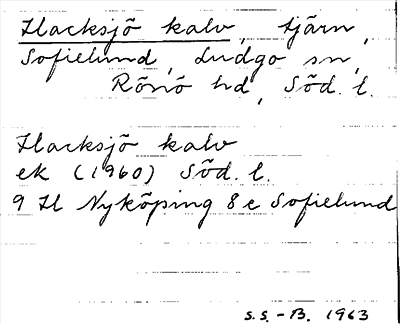 Hacksjö kalv, tjärn,
Sofielund, Ludgo sn,
Rönö hd, Söd. l.
Hacksjö kalv
ek (1960) Söd. l.
9 H Nyköping 8 e Sofielund
S.S. - B. 1963